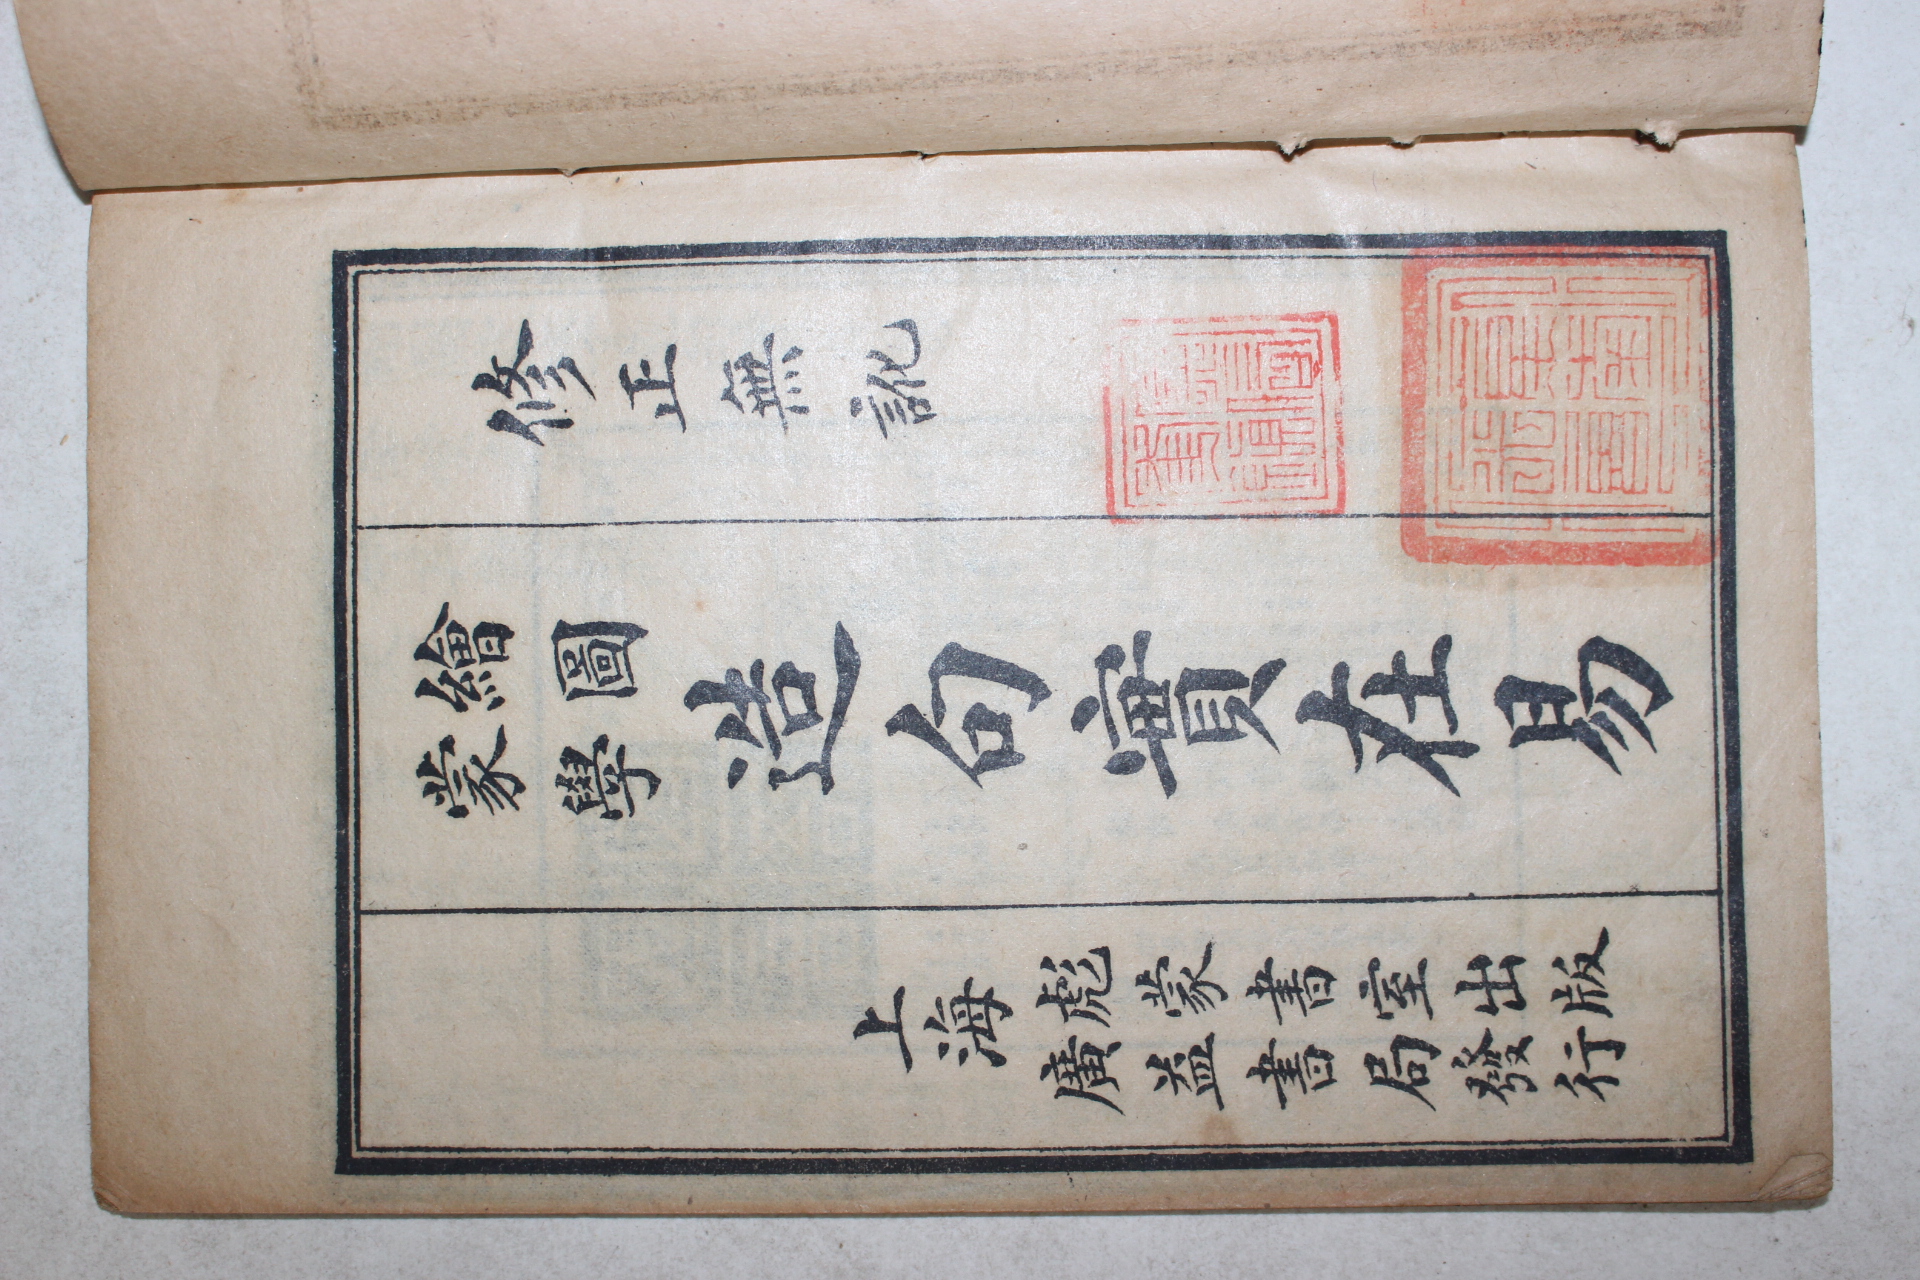 修正無訛
繪圖
蒙學
造句實在易
上海
彪蒙書室出版
廣益書局發行